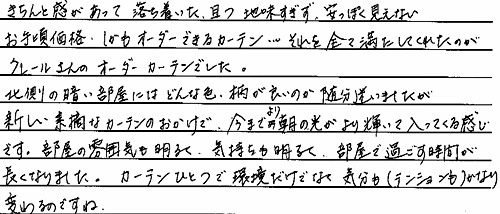 きちんと感があって落ち着いた、且つ地味すぎず、安っぽく見えない
お手頃価格・しかもオーダーできるカーテン…それを全て満たしてくれたのが
クレールさんのオーダーカーテンでした。
北側の暗い部屋にはどんな色・柄が良いのか随分迷いましたが
新しい素敵なカーテンのおかげで、今までより朝の光がより輝いて入ってくる感じ
です。部屋の雰囲気も明るく、気持ちも明るく、部屋で過ごす時間が
長くなりました。カーテンひとつで環境だけでなく気分も(テンションも)かなり
変わるのですね。